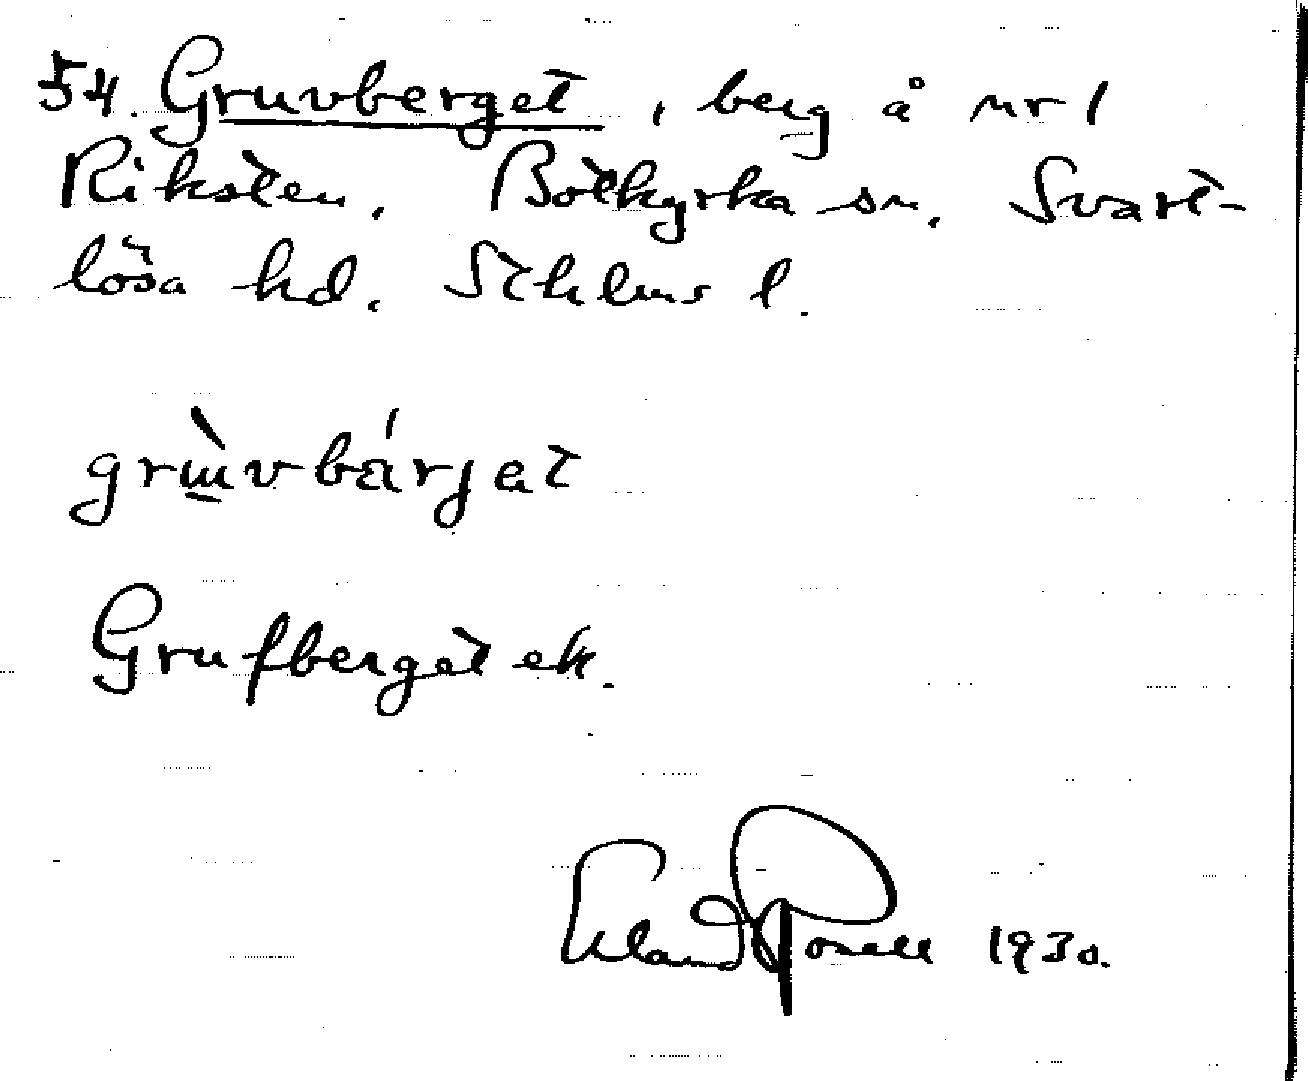 54. Gruvberget, berg å nr 1
Riksten, Botkyrka sn, Svart-
lösa hd, Sthlms l.
grɯ̀vbárjat
Grufberget ek.
Erland Rosell 1930.